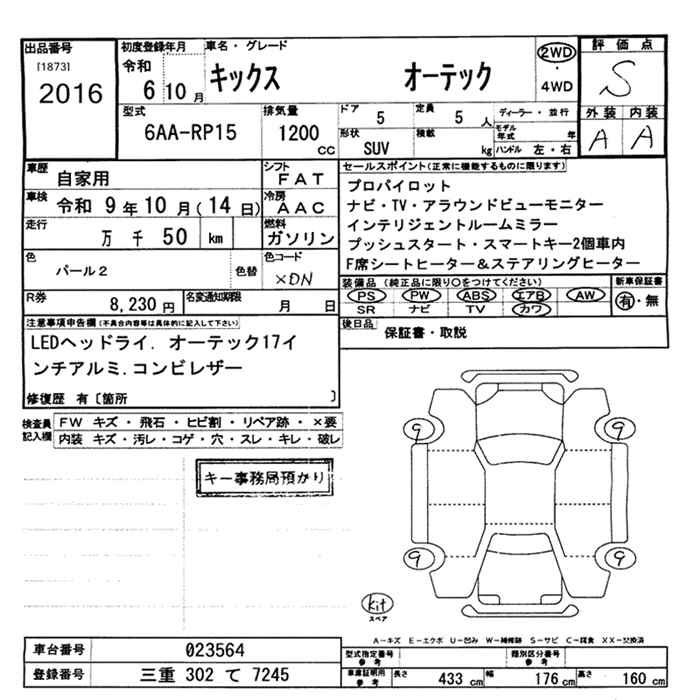 出品番号
[1873]
2016
初度登録年月
令和
6 10 月
車名・グレード
キックス オーテック
2WD
・
4WD
評価点
S
外装 内装
A A
型式
6AA-RP15
排気量
1200 cc
ドア
5
定員
5 人
形状
SUV
積載
kg
ディーラー・並行
モデル年式 年
ハンドル 左・右
車歴
自家用
シフト
FAT
車検
令和 9 年 10 月 (14 日)
冷房
AAC
走行
万 千 50 km
燃料
ガソリン
色
パール2
色替
色コード
XDN
R券
8,230 円
名変通知期限
月 日
セールスポイント(正常に機能するものに限ります)
プロパイロット
ナビ・TV・アラウンドビューモニター
インテリジェントルームミラー
プッシュスタート・スマートキー2個車内
F席シートヒーター&ステアリングヒーター
装備品 (純正品に限り○をつけてください)
PS PW ABS エアB AW
SR ナビ TV カワ
新車保証書
有・無
後日品
保証書・取説
注意事項申告欄(不具合内容等は具体的に記入して下さい)
LEDヘッドライ. オーテック17イ
ンチアルミ.コンビレザー
修復歴 有〔箇所 〕
検査員
記入欄
FW キズ・飛石・ヒビ割・リペア跡・×要
内装 キズ・汚レ・コゲ・穴・スレ・キレ・破レ
キー事務局預かり
9 9
9 9
kit
スペア
A-キズ E-エクボ U-凹み W-補修跡 S-サビ C-腐食 XX-交換済
車台番号
023564
登録番号
三重 302 て 7245
型式指定番号
参考
類別区分番号
参考
車庫証明用
参考
長さ 433 cm 幅 176 cm 高さ 160 cm